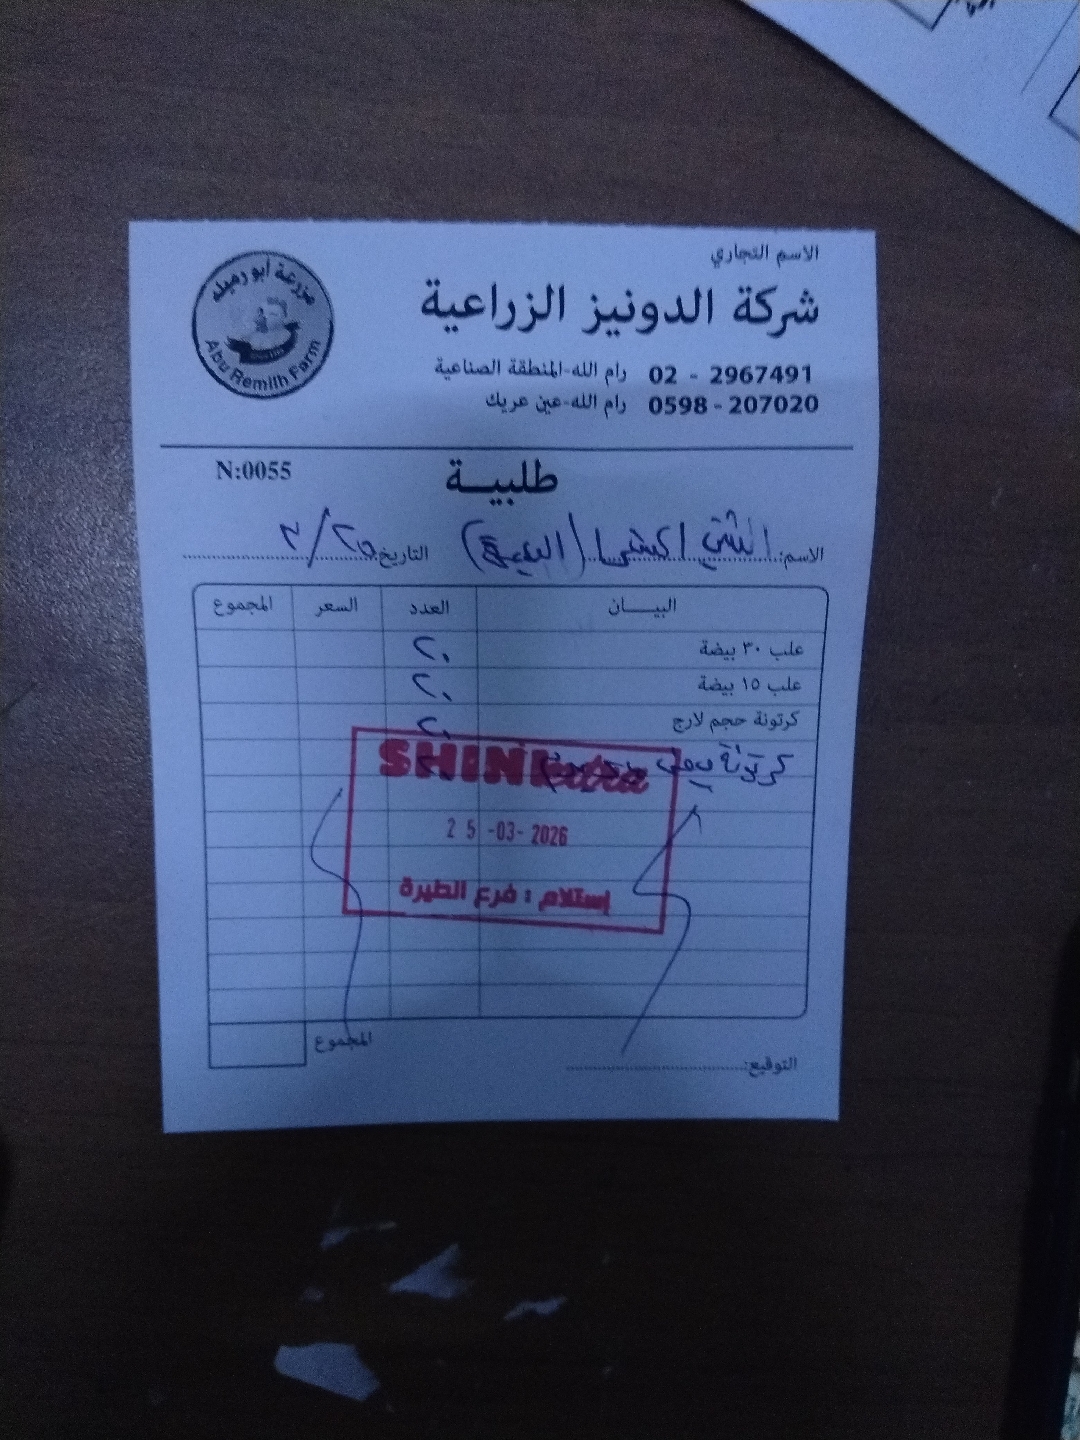 الاسم التجاري
مزرعة أبو رميله
Abu Remilh Farm
شركة الدونيز الزراعية
02 - 2967491 رام الله-المنطقة الصناعية
0598-207020 رام الله-عين عريك
N:0055
طلبيـــة
الاسم: الشني اكسترا (الطيرة) التاريخ ٢٥/٣
البيـــــان العدد السعر المجموع
علب ٣٠ بيضة ٢٠
علب ١٥ بيضة ٢٠
كرتونة حجم لارج ٢٠
كرتونة بيض
SHINI extra
25-03-2026
إستلام : فرع الطيرة
المجموع
التوقيع: